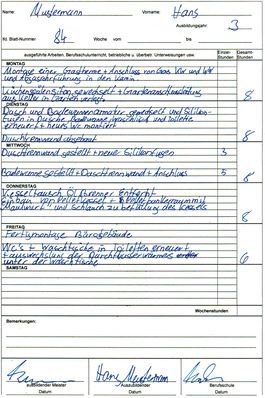 Name: Mustermann Vorname: Hans
Ausbildungsjahr: 3
lfd. Blatt-Nummer 84 Woche vom bis
ausgeführte Arbeiten, Berufsschulunterricht, betriebliche u. überbetr. Unterweisungen usw. Einzel-Stunden Gesamt-Stunden
MONTAG
Montage einer Gastherme + Anschluss von Gas VL und
Abgasrohrführung in den Kamin.
Küchenspülensiton gewechselt + Gartenanschlussleitung
aus Keller in Garten verlegt 8
DIENSTAG
Dusch und Badewannenarmatur gewechselt und Silikon-
Fugen in Dusche Badewanne Waschtisch und Toilette
erneuert + neues WC montiert 8
Duschtrennwand
MITTWOCH
Duschtrennwand gestellt + neue Silikonfugen 3
Badewanne gestellt + Duschtrennwand + Anschluss 5 8
DONNERSTAG
Kesseltausch Öl Brenner Entfernt
Einbau von Pelletkessel + Pelletbunkerraum mit
Maulwurf und Schlauch zu befüllung des Kessels 8
FREITAG
Fertigmontage Bürogebäude
Wc's + Waschtische in Toiletten erneuert
+ auswechslung der Durchlauferwärmers
unter der Waschtische 6
SAMSTAG
Wochenstunden
Bemerkungen:
Hans Mustermann
ausbildender Meister Auszubildender Berufsschule
Datum Datum Datum